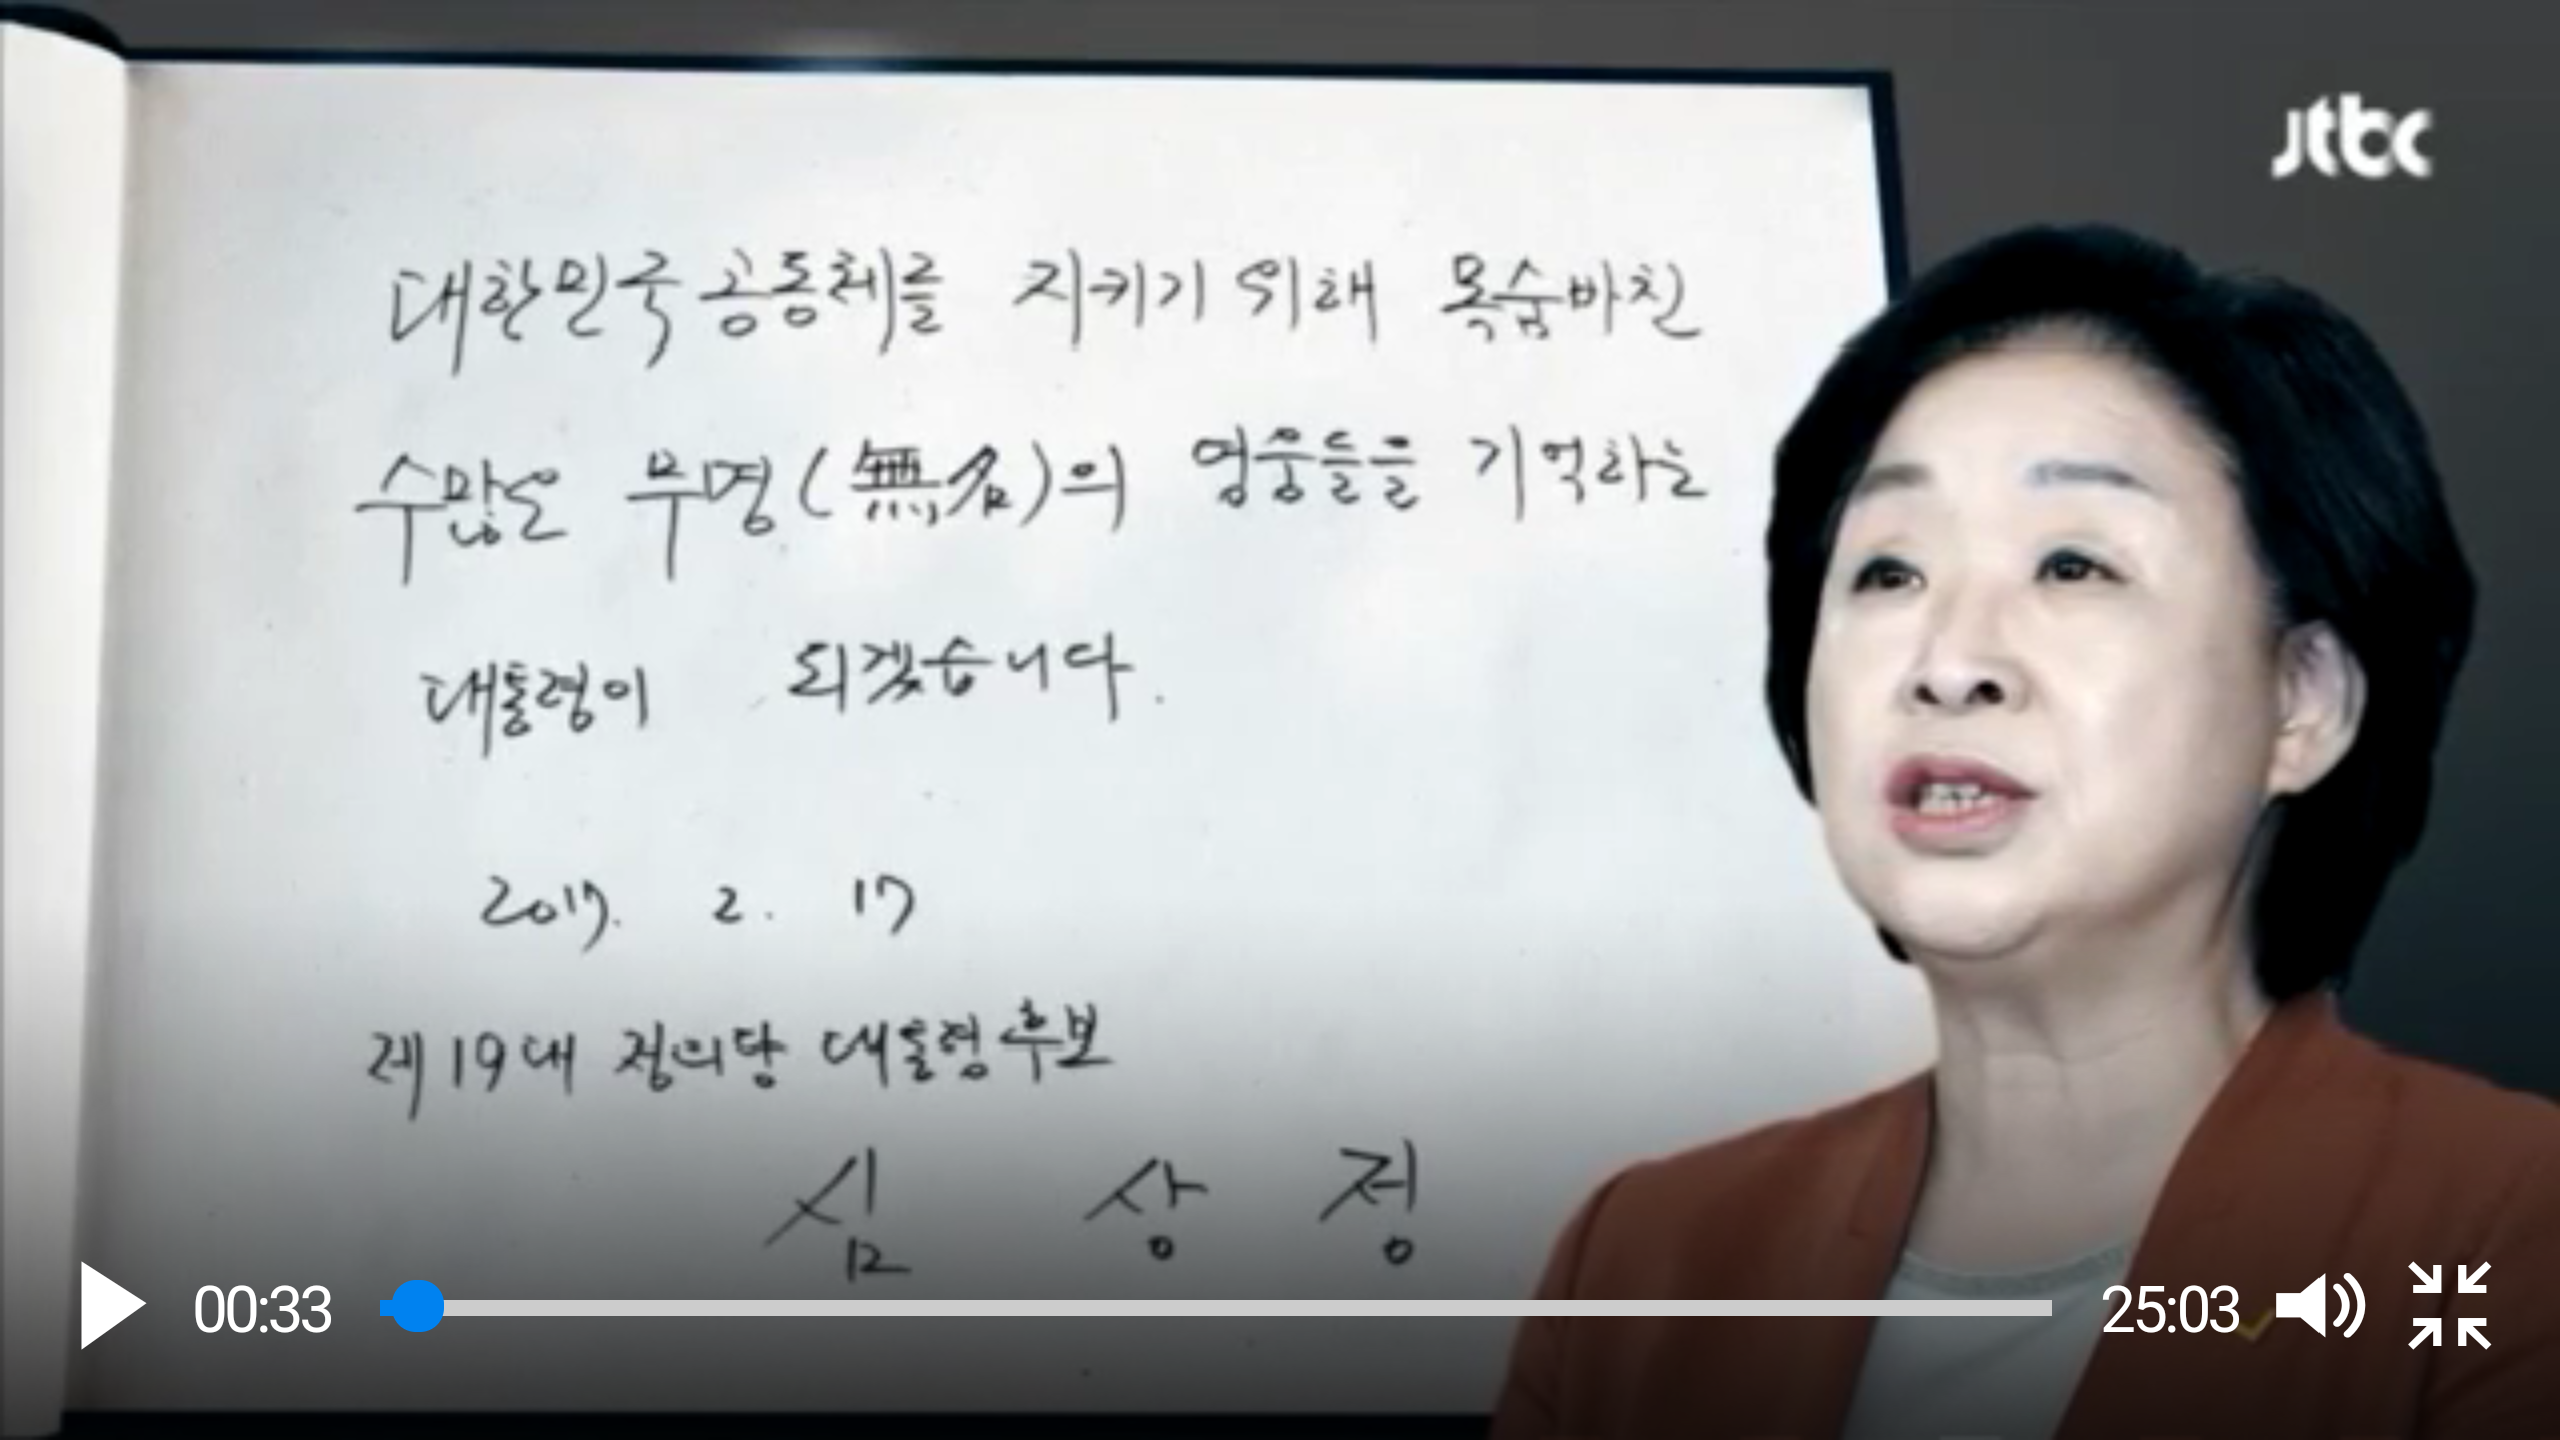 jtbc
대한민국 공동체를 지키기 위해 목숨바친
수많은 무명(無名)의 영웅들을 기억하는
대통령이 되겠습니다.
2017. 2. 17
제19대 정의당 대통령후보
심 상 정
00:33 25:03